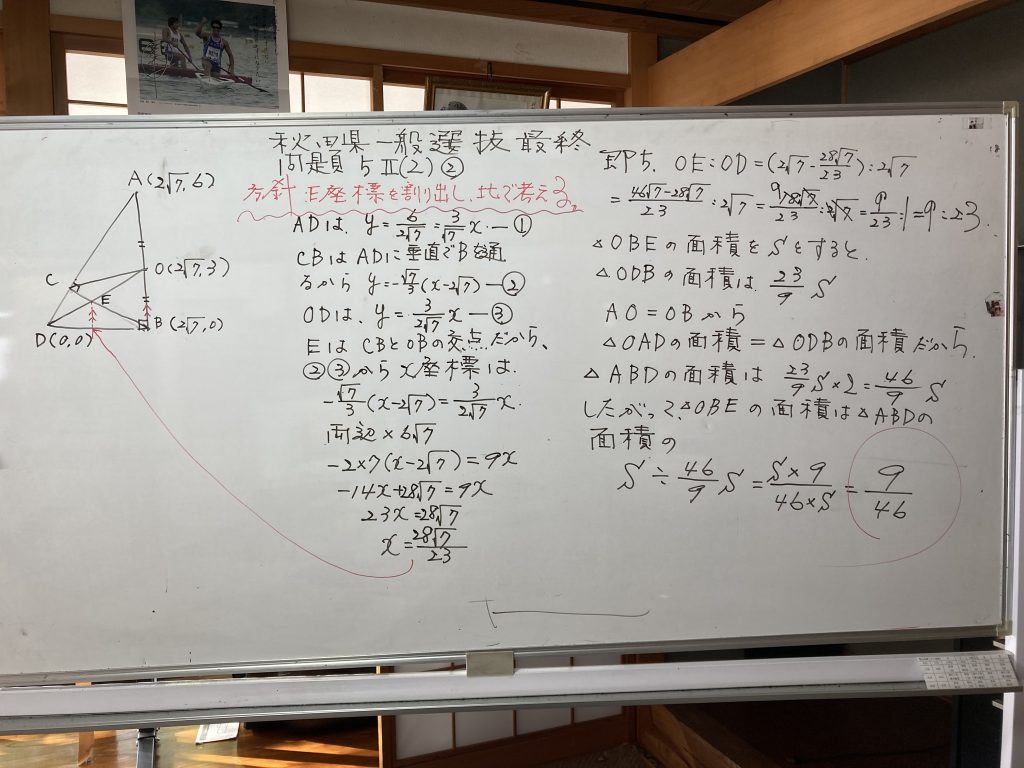 秋田県一般選抜最終
問題 5 Ⅱ(2) ②
方針 E座標を割り出し、比で考える。
A(2√7, 6)
O(2√7, 3)
C
E
B(2√7, 0)
D(0, 0)
ADは、y = 6/2√7 = 3/√7 x … ①
CBはADに垂直でBを通
るから y = -√7/3 (x-2√7) — ②
ODは、y = 3/2√7 x — ③
EはCBとOBの交点だから、
②③からx座標は.
-√7/3 (x-2√7) = 3/2√7 x.
両辺 × 6√7
-2×7(x-2√7) = 9x
-14x+28√7 = 9x
23x = 28√7
x = 28√7/23
即ち. OE:OD = (2√7 - 28√7/23) : 2√7
= 46√7-28√7/23 : 2√7 = 9 18√7/23 : 2√7 = 9/23 : 1 = 9 : 23.
△OBEの面積をSとすると.
△ODBの面積は 23/9 S
AO = OB から
△OADの面積 = △ODBの面積だから.
△ABDの面積は 23/9 S×2 = 46/9 S
したがって、△OBEの面積は△ABDの
面積の
S ÷ 46/9 S = S×9/46×S = 9/46